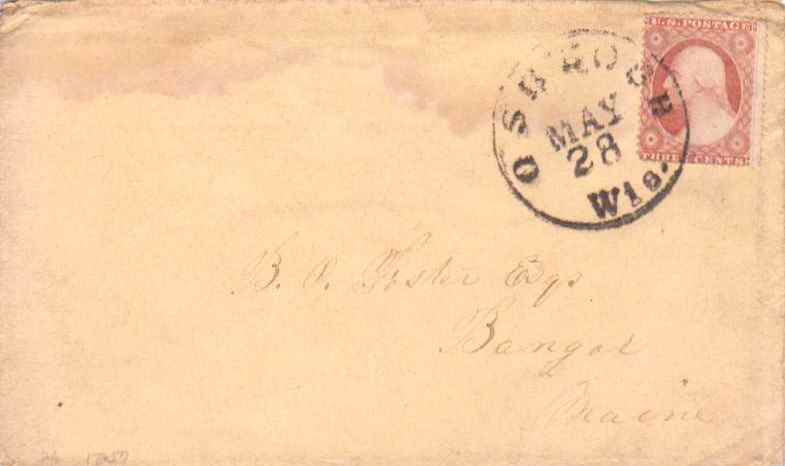 U.S. POSTAGE
THREE CENTS
OSHKOSH
MAY
28
Wis.
B. O. Foster Esqr
Bangor
Maine